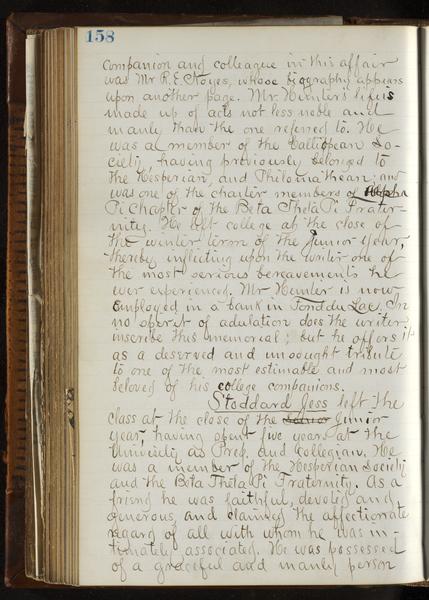 158
companion and colleague in this affair
was Mr R. E. Noyes, whose biography appears
upon another page. Mr. Hunter's life is
made up of acts not less noble and
manly than the one referred to. He
was a member of the Calliopean So-
ciety, having previously belonged to
the Hesperian, and Philomathean; and
was one of the charter members of Alpha
Pi Chapter of the Beta Theta Pi Frater-
nity. He left college at the close of
the winter term of the Junior year,
thereby inflicting upon the writer one of
the most serious bereavements he
ever experienced. Mr Hunter is now
employed in a bank in Fond du Lac. In
no spirit of adulation does the writer
inscribe this memorial; but he offers it
as a deserved and unsought tribute
to one of the most estimable and most
beloved of his college companions.
Stoddard Jess left the
class at the close of the Junior
year, having spent five years at the
University as Prep. and Collegian. He
was a member of the Hesperian Society
and the Beta Theta Pi Fraternity. As a
friend he was faithful, devoted and
generous, and claimed the affectionate
regard of all with whom he was in-
timately associated. He was possessed
of a graceful and manly person